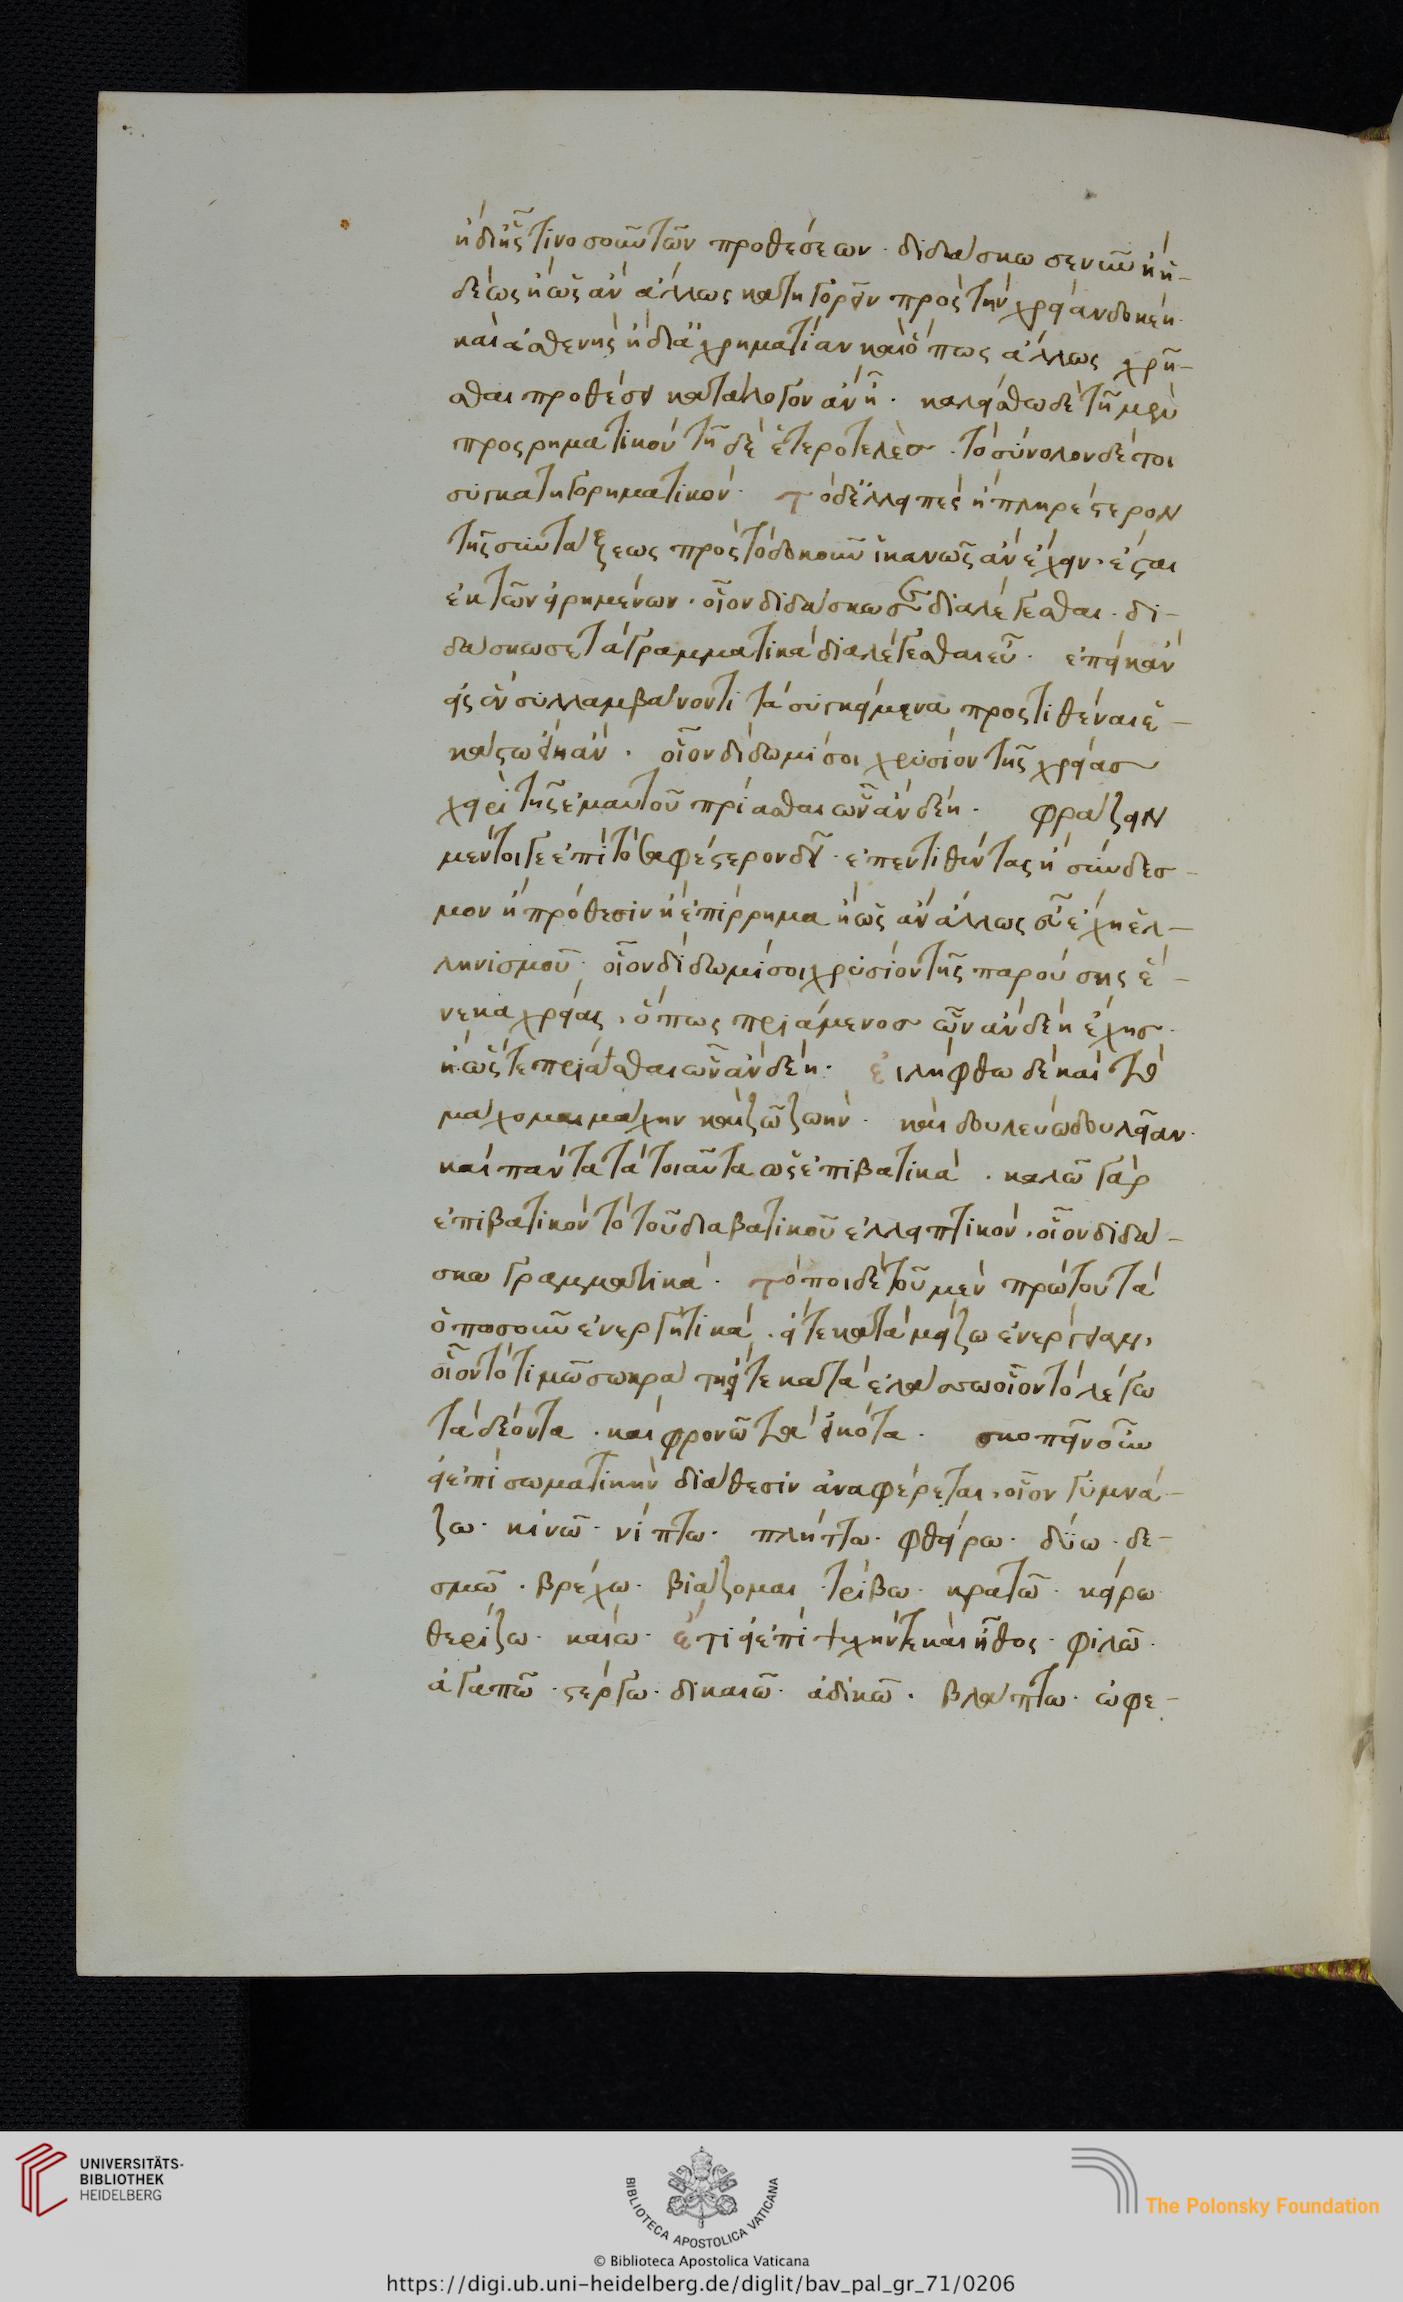 ἢ δι' ἧς τινοσοῦν τῶν προθέσεων. διδάσκω σε νῦν ἢ ἡ-
δέως ἢ ὡς ἂν ἄλλως κατηγορεῖν πρὸς τὴν χρείαν δοκέῃ.
καὶ ἀσθενὴς ἢ διὰ χρηματίαν καὶ ὅπως ἄλλως χρῆ-
σθαι προθέσει κατὰ λόγον ἂν ᾖ. καλείσθω δὲ τῇ μὲν
προσρηματικὸν τῇ δὲ ἑτεροτελὲσ. τὸ σύνολον δέ τοι
συγκατηγορηματικόν. τὸ δ' ἐλλειπὲς ἢ πληρέστερον
τῆς συντάξεως πρὸς τὸ δοκοῦν ἱκανῶς ἂν ἔχειν, ἔσται
ἐκ τῶν εἰρημένων. οἷον διδάσκω σε διαλέγεσθαι. δι-
δάσκω σε τὰ γραμματικὰ διαλέγεσθαι εὖ. ἐπεὶ κἂν
εἷς ἓν συλλαμβάνοντι τὰ συγκείμενα προστιθέναι ἑ-
κάστω εἰκάν. οἷον δίδωμί σοι χρυσίον τῆς χρείασ
χρεὶ τῆς ἐμαυτοῦ πρίασθαι ὧν ἂν δέῃ. φράζειν
μέντοι γε ἐπὶ τὸ σαφέστερον δεῖ. ἐπεντιθέντας ἢ σύνδεσ-
μον ἢ πρόθεσιν ἢ ἐπίρρημα ἢ ὡς ἂν ἄλλως εὖ ἔχῃ ἑλ-
ληνισμοῦ. οἷον δίδωμί σοι χρυσίον τῆς παρούσης ἕ-
νεκα χρείας, ὅπως πριάμενοσ ὧν ἂν δέῃ ἔχησ.
ἢ ὥστε πρίασθαι ὧν ἂν δέῃ. εἰλήφθω δὲ καὶ τὸ
μάχομαι μάχην καὶ ζῶ ζωήν. καὶ δουλεύω δουλείαν.
καὶ πάντα τὰ τοιαῦτα ὡς ἐπιβατικά. καλῶ γὰρ
ἐπιβατικὸν τὸ τοῦ διαβατικοῦ ἐλλειπτικόν, οἷον διδά-
σκω γραμματικά. τόποι δὲ τοῦ μὲν πρώτου τὰ
ὁπωσοῦν ἐνεργητικά. εἴτε κατὰ μείζω ἐνέργειαν,
οἷον τὸ τιμῶ σωκράτη εἴτε κατὰ ἐλάσσω οἷον τὸ λέγω
τὰ δέοντα. καὶ φρονῶ τὰ εἰκότα. σκοπεῖν οὖν
εἰ ἐπὶ σωματικὴν διάθεσιν ἀναφέρεται, οἷον γυμνά-
ζω. κινῶ. νίπτω. πλήττω. φθείρω. δύω. δε-
σμῶ. βρέχω. βιάζομαι. τρίβω. κρατῶ. κείρω.
θερίζω. καίω. ἔτι εἰ ἐπὶ ψυχήν τε καὶ ἦθος. φιλῶ.
ἀγαπῶ. στέργω. δικαιῶ. ἀδικῶ. βλάπτω. ὠφε-
UNIVERSITÄTS-
BIBLIOTHEK
HEIDELBERG
BIBLIOTECA APOSTOLICA VATICANA
The Polonsky Foundation
© Biblioteca Apostolica Vaticana
https://digi.ub.uni-heidelberg.de/diglit/bav_pal_gr_71/0206